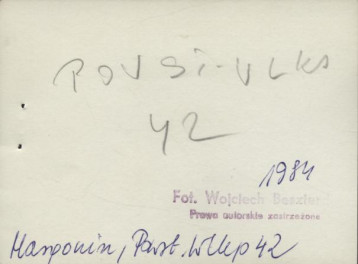 POWST. WLKP
42
1984
Fot. Wojciech
Prawa autorskie zastrzeżone
Margonin, Powst. Wlkp 42